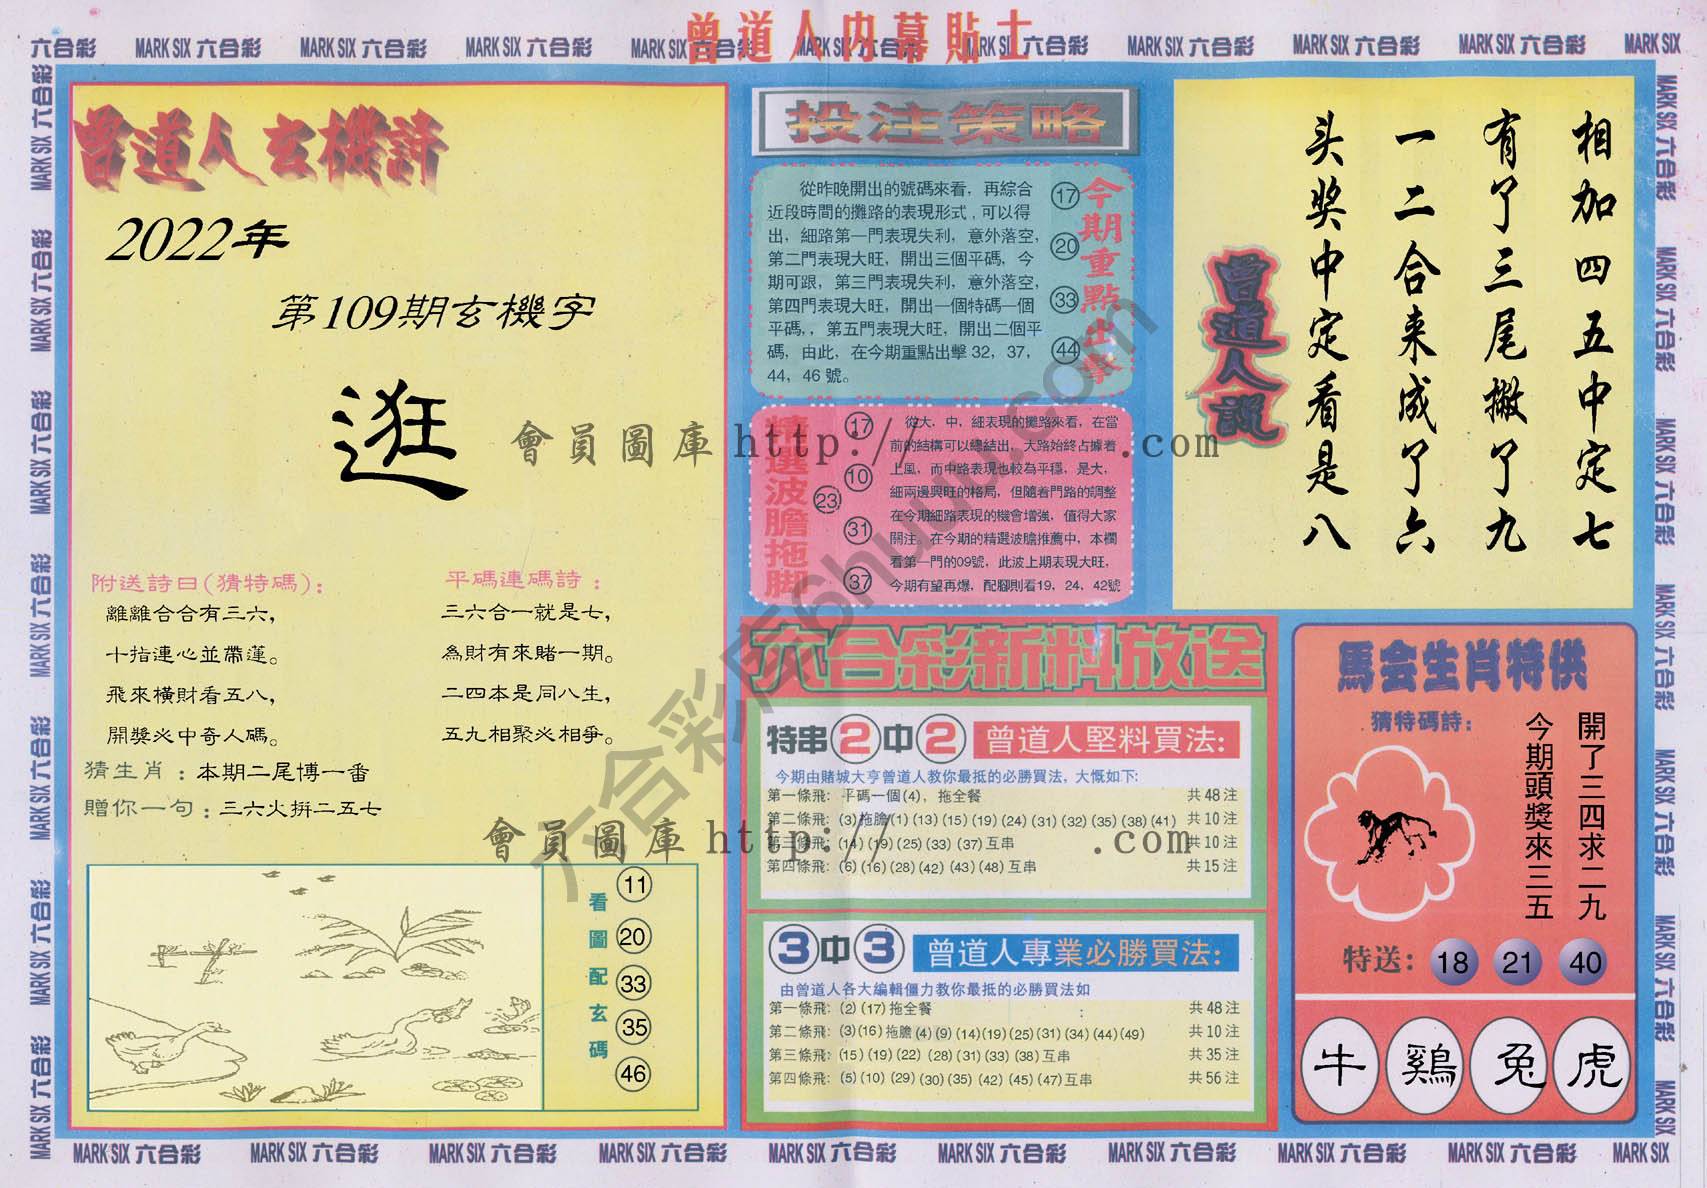 曾道人内幕貼士
六合彩 MARK SIX 六合彩 MARK SIX 六合彩 MARK SIX 六合彩 MARK SIX 六合彩 MARK SIX 六合彩 MARK SIX 六合彩 MARK SIX 六合彩 MARK SIX 六合彩 MARK SIX 六合彩 MARK SIX
曾道人玄機詩
2022年
第109期玄機字
逛
附送詩曰(猜特碼):
離離合合有三六,
十指連心並蒂蓮。
飛來橫財看五八,
開獎必中奇人碼。
平碼連碼詩：
三六合一就是七,
為財有來賭一期。
二四本是同八生,
五九相聚必相爭。
猜生肖：本期二尾博一番
贈你一句：三六火拚二五七
看圖配玄碼
11
20
33
35
46
投注策略
今期重點出擊
17
20
33
44
從昨晚開出的號碼來看，再綜合
近段時間的攤路的表現形式，可以得
出，細路第一門表現失利，意外落空，
第二門表現大旺，開出三個平碼，今
期可跟，第三門表現失利，意外落空，
第四門表現大旺，開出一個特碼一個
平碼，，第五門表現大旺，開出二個平
碼，由此，在今期重點出擊32，37，
44，46 號。
精選波膽拖脚
17
10
23
31
37
從大，中，細表現的攤路來看，在當
前的結構可以總結出，大路始終占據着
上風，而中路表現也較為平穩，是大，
細兩邊興旺的格局，但隨着門路的調整
在今期細路表現的機會增強，值得大家
關注。在今期的精選波膽推薦中，本欄
看第一門的09號，此波上期表現大旺，
今期有望再爆，配腳則看19，24，42號
相加四五中定七
有了三尾撇了九
一二合来成了六
头奖中定看是八
曾道人説
六合彩新料放送
特串2中2 曾道人堅料買法:
今期由賭城大亨曾道人教你最抵的必勝買法，大慨如下:
第一條飛: 平碼一個(4)，拖全餐 共48注
第二條飛: (3)拖膽(1)(13)(15)(19)(24)(31)(32)(35)(38)(41) 共10注
第三條飛: (14)(19)(25)(33)(37)互串 共10注
第四條飛: (6)(16)(28)(42)(43)(48)互串 共15注
3中3 曾道人專業必勝買法:
由曾道人各大編輯僵力教你最抵的必勝買法如
第一條飛: (2)(17)拖全餐 : 共48注
第二條飛: (3)(16)拖膽(4)(9)(14)(19)(25)(31)(34)(44)(49) 共10注
第三條飛: (15)(19)(22)(28)(31)(33)(38)互串 共35注
第四條飛: (5)(10)(29)(30)(35)(42)(45)(47)互串 共56注
馬会生肖特供
猜特碼詩:
開了三四求二九
今期頭獎來三五
特送: 18 21 40
牛 鷄 兔 虎
會員圖庫 http:// .com
會員圖庫 http:// .com
六合彩库6huuu.com
MARK SIX 六合彩 MARK SIX 六合彩 MARK SIX 六合彩 MARK SIX 六合彩 MARK SIX 六合彩 MARK SIX 六合彩 MARK SIX 六合彩 MARK SIX 六合彩 MARK SIX 六合彩 MARK SIX